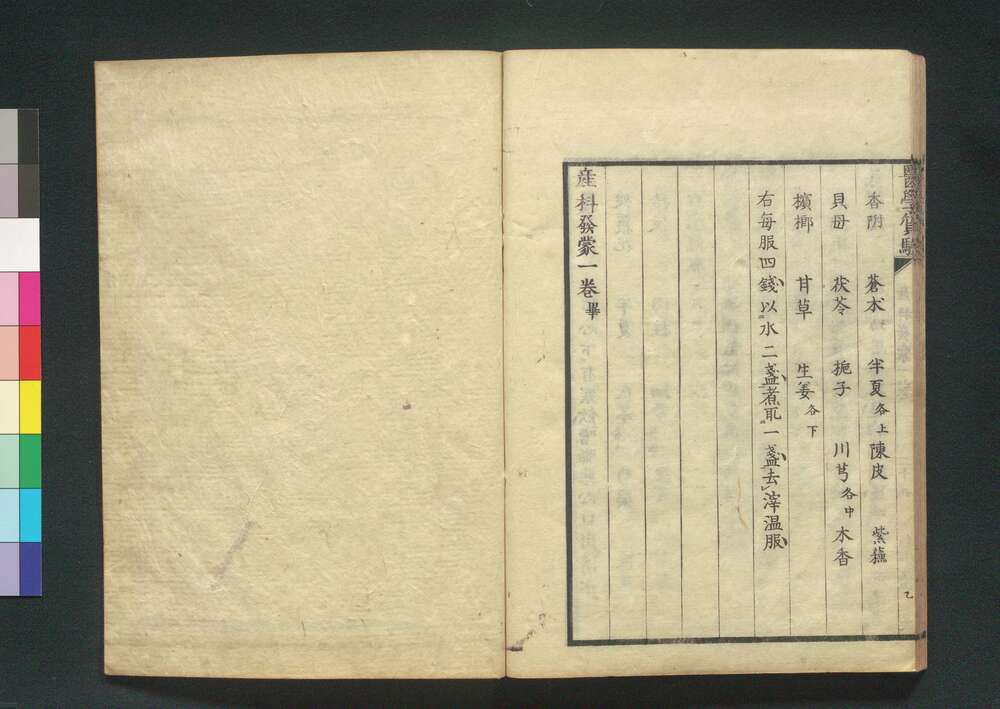 香附　蒼朮　半夏各上陳皮　紫蘓
貝母　茯苓　梔子　川芎各中木香
檳榔　甘草　生姜各下
右每服四錢以水二盞煮取一盞去滓温服
産科發蒙一卷畢